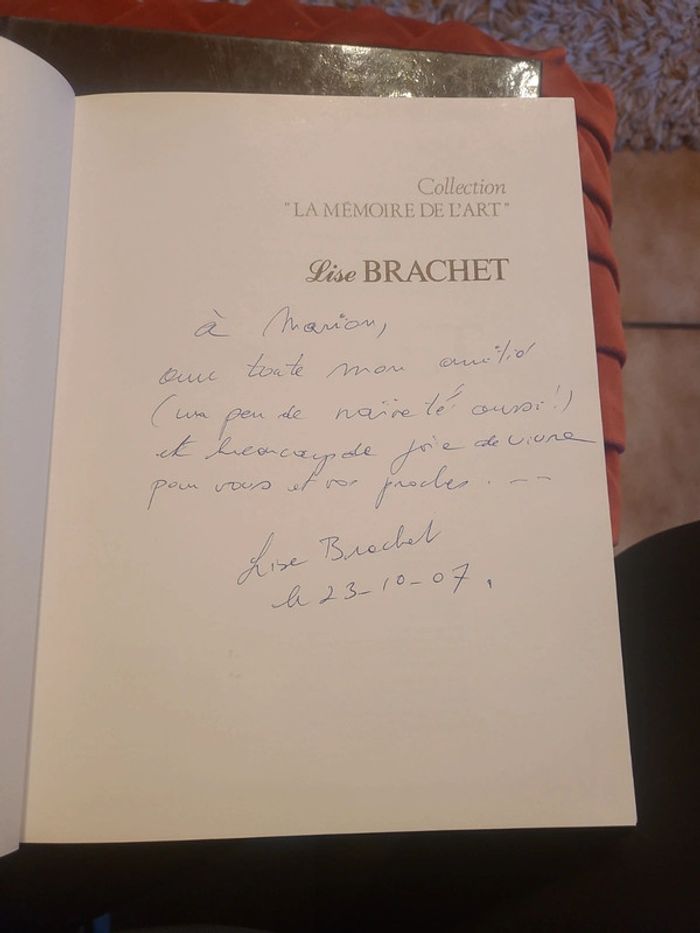 Collection
"LA MÉMOIRE DE L'ART"
Lise BRACHET
à Marion,
avec toute mon amitié
(un peu de naïveté aussi !)
et beaucoup de joie de vivre
pour vous et vos proches . - -
Lise Brachet
le 23-10-07.